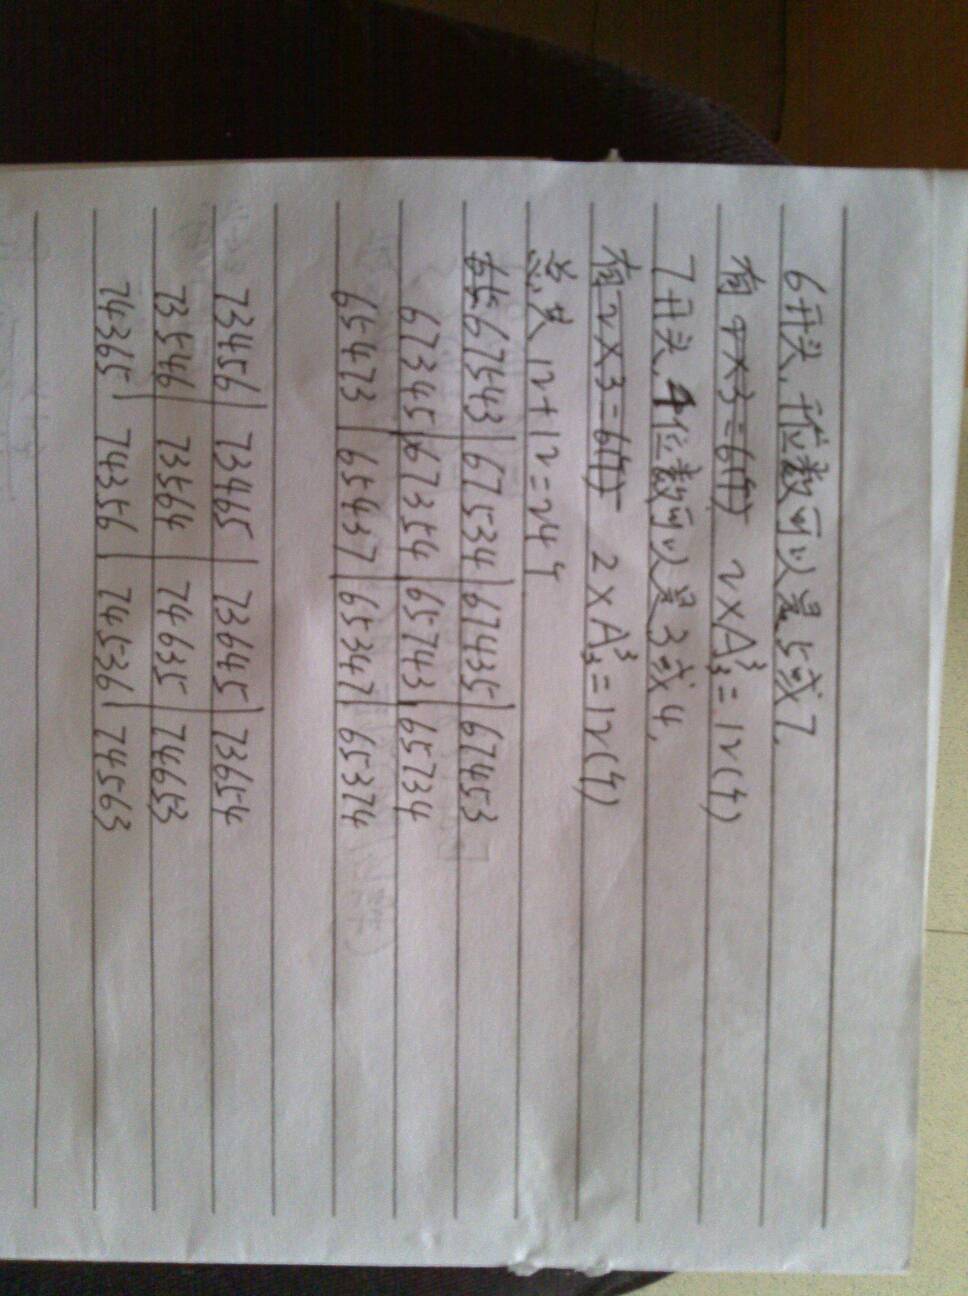 6开头,千位数可以是5或7,
有 2×3=6(个) 2×A³₃=12(个)
7开头,千位数可以是3或4,
有2×3=6(个) 2×A³₃=12(个)
总共 12+12=24个
67543|67534|67435|67453
67345|67354|65743|65734
65473|65437|65347|65374
73456|73465|73645|73654
73546|73564|74635|74653
74365|74356|74536|74563